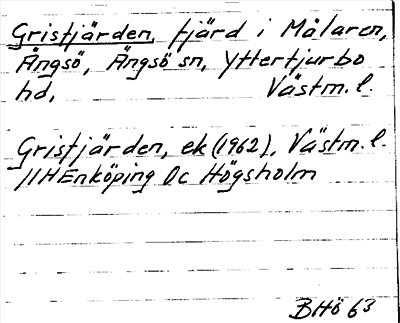 Gristjärden, fjärd i Mälaren,
Ängsö, Ängsö sn, Yttertjurbo
hd, Västm. l.
Gristjärden, ek (1962), Västm. l.
11H Enköping 0c Högsholm
BHö 63